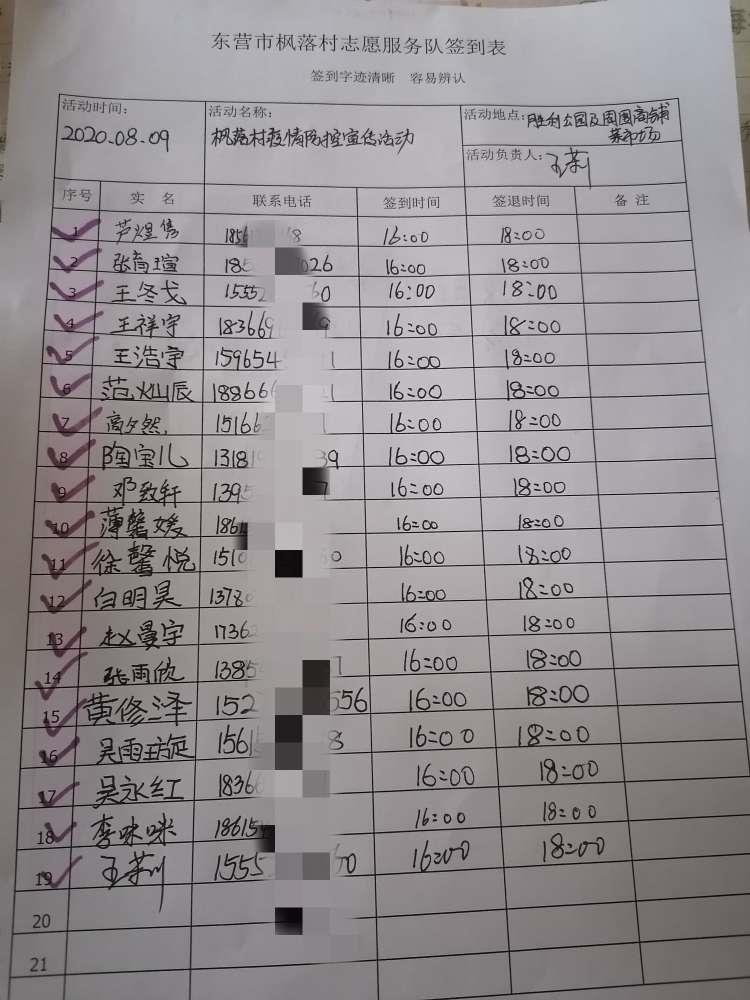 东营市枫落村志愿服务队签到表
签到字迹清晰 容易辨认
活动时间: 活动名称: 活动地点: 胜利公园及周围商铺
2020.08.09 枫落村疫情防控宣传活动 菜市场
活动负责人: 王莉
序号 实 名 联系电话 签到时间 签退时间 备 注
1 芦煜 1856 8 16:00 18:00
2 张育瑄 185 026 16:00 18:00
3 王冬戈 15552 0 16:00 18:00
4 王祥宇 183669 9 16:00 18:00
5 王浩宇 159654 1 16:00 18:00
6 范灿辰 188666 1 16:00 18:00
7 高夕然 15166 1 16:00 18:00
8 陶宝儿 1318 39 16:00 18:00
9 邓致轩 1395 16:00 18:00
10 薄馨媛 1861 16:00 18:00
11 徐馨悦 1510 0 16:00 18:00
12 白明昊 1378 16:00 18:00
13 赵曼宇 17362 16:00 18:00
14 张雨欣 1385 16:00 18:00
15 黄修泽 152 556 16:00 18:00
16 吴雨璇 1561 8 16:00 18:00
17 吴永红 1836 16:00 18:00
18 李咪咪 18615 16:00 18:00
19 王莉 1555 0 16:00 18:00
20
21